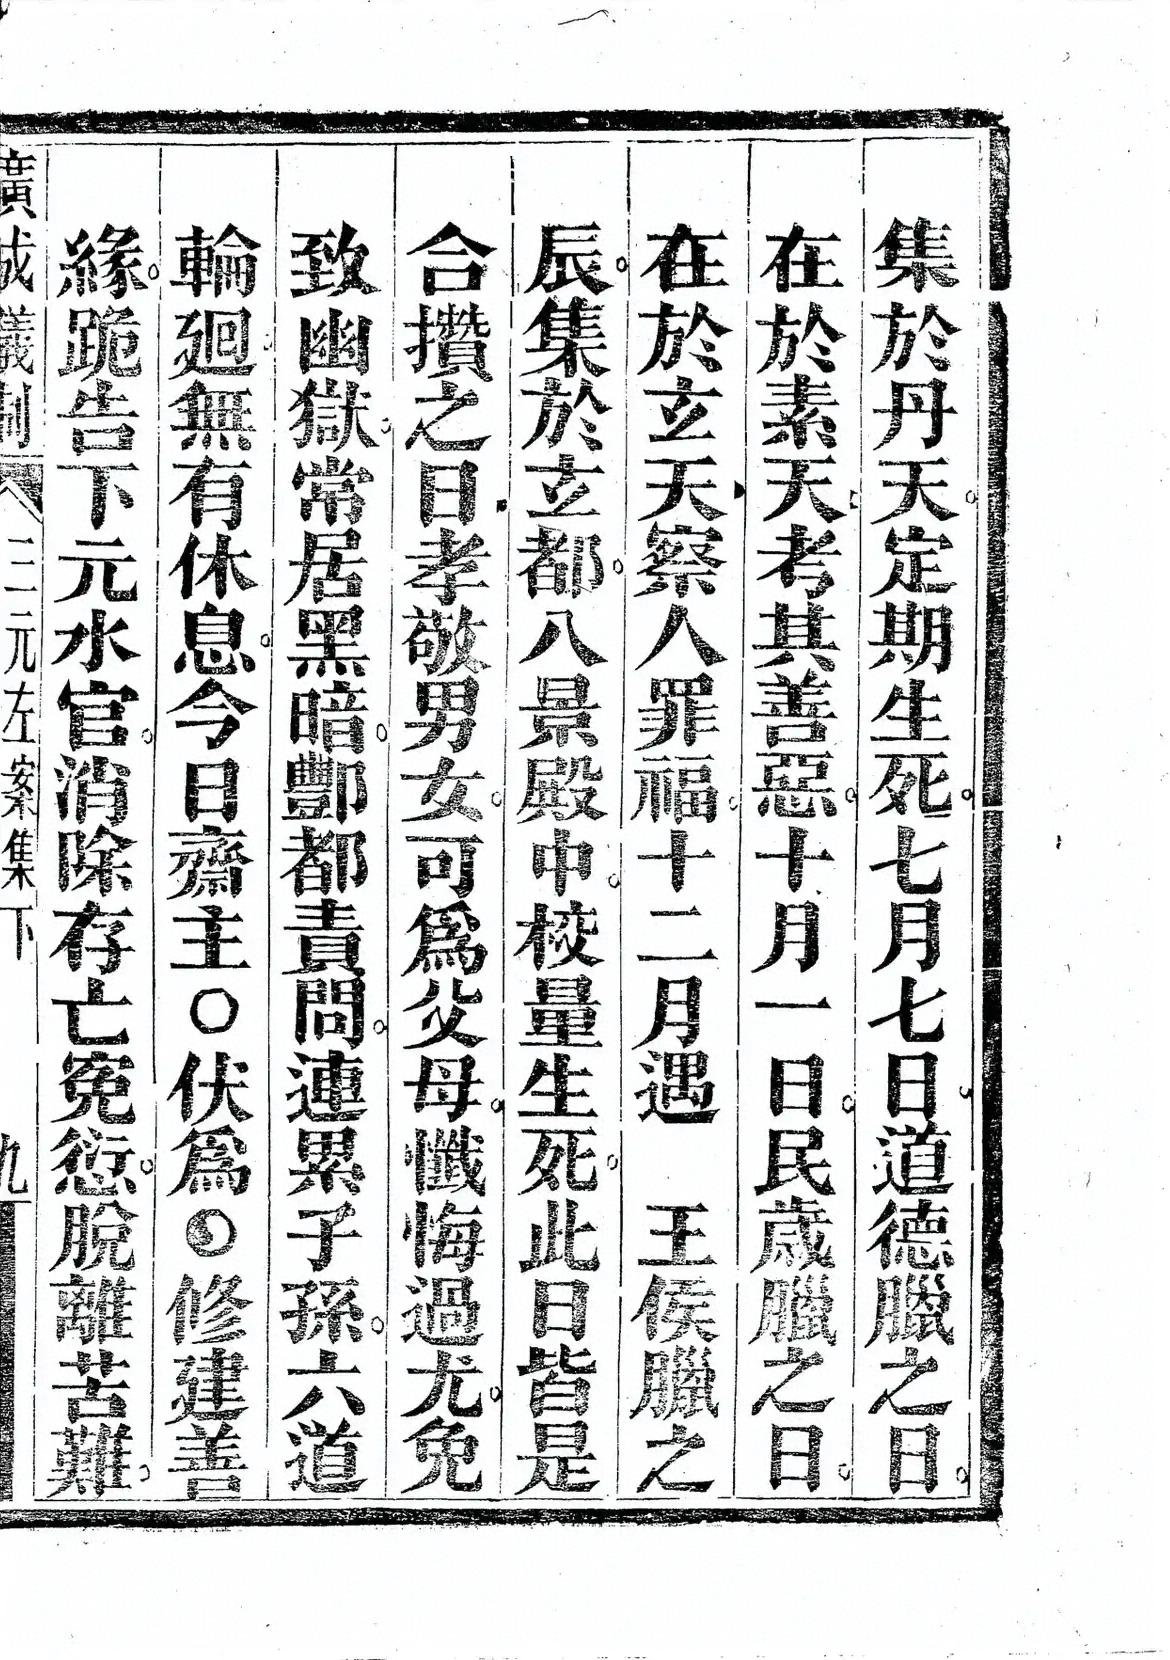 集於丹天。定期生死。七月七日。道德臘之日。
在於素天。考其善惡。十月一日。民歲臘之日。
在於玄天。察人罪福。十二月遇　王侯臘之
辰。集於玄都。八景殿中。校量生死。此日皆是
合攢之日。孝敬男女。可為父母。懺悔過尤。免
致幽獄。常居黑暗。酆都責問。連累子孫。六道
輪廻。無有休息。今日齋主○伏為◎修建善
緣。跪告下元水官。消除存亡冤愆。脫離苦難。
廣成儀制 三元左案集下 九